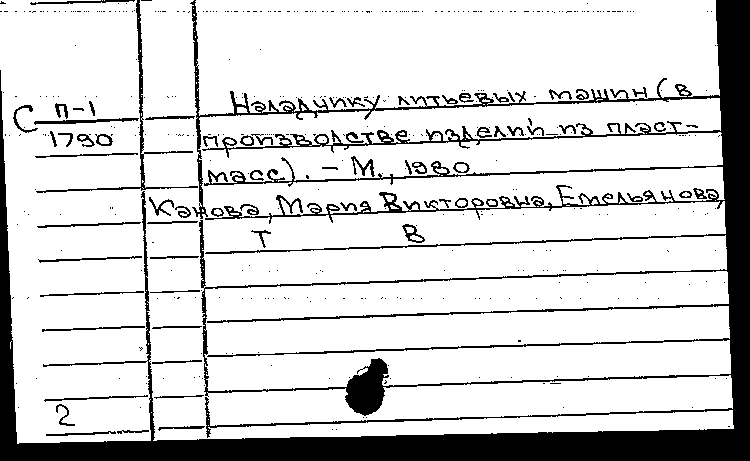 С П-1 Наладчику литьевых машин (в
1790 производстве изделий из пласт-
масс). – М., 1980
Канова, Мария Викторовна, Емельянова,
Т В
2